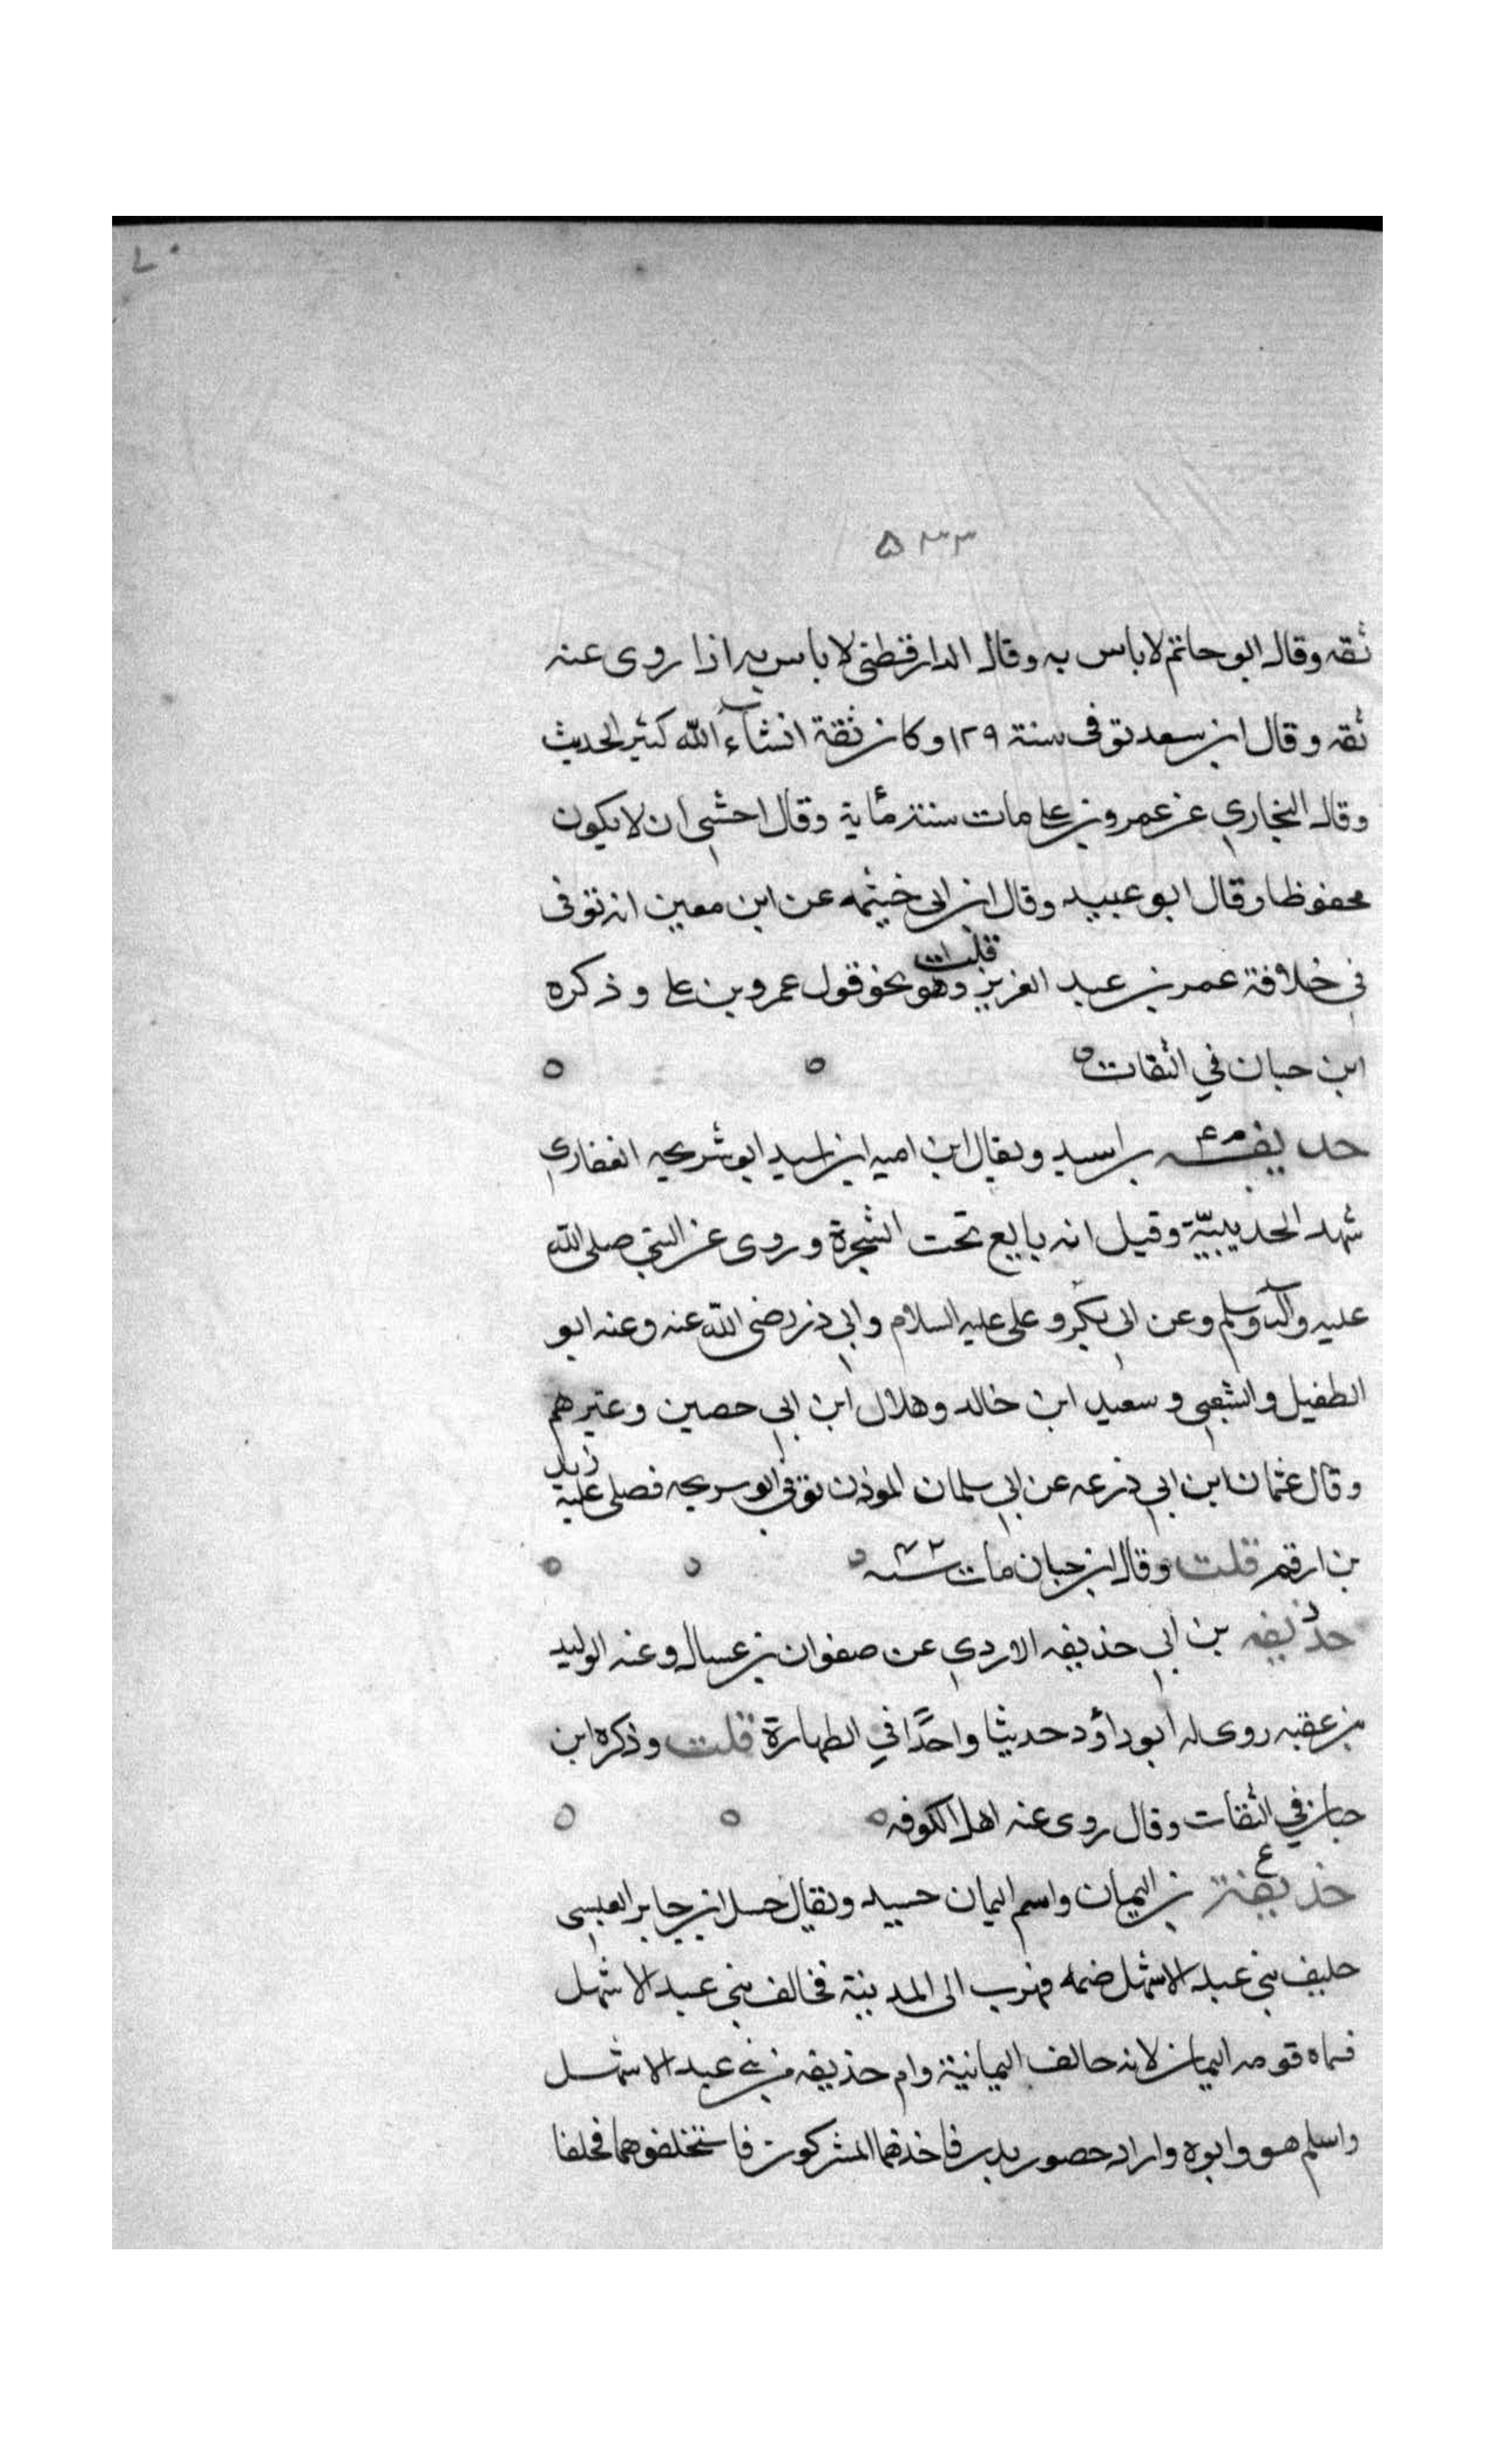 ٥٣٣
ثقه وقال ابو حاتم لا باس به وقال الدارقطنى لا باس به اذا روى عنه
ثقه وقال ابن سعد توفى سنة ١٢٩ وكان ثقة انشاء الله كثير الحديث
وقال البخاري عن عمرو بن على مات سنة مأية وقال اخشى ان لا يكون
محفوظا وقال ابو عبيد وقال ابن ابى خيثمه عن ابن معين انه توفى
في خلافة عمر بن عبد العزيز قلت وهو نحو قول عمرو بن على وذكره
ابن حبان في الثقات
حذيفه بن اسيد ويقال ابن اميه ابن اسيد ابو سريحه الغفاري
شهد الحديبيّة وقيل انه بايع تحت الشجرة وروى عن النبي صلى الله
عليه وآله وسلم وعن ابى بكر وعلى عليه السلام وابي ذر رضى الله عنه وعنه ابو
الطفيل والشعبي وسعيد ابن خالد وهلال ابن ابي حصين وغيرهم
وقال عثمان ابن ابي ذرعه عن ابي سلمان الموذن توفي ابو سريحه فصلى عليه زيد
بن ارقم قلت وقال ابن حبان مات سنه ٤٢
حذيفه بن ابي حذيفه الازدي عن صفوان بن عسال وعنه الوليد
بن عقبه روى له ابو داؤد حديثا واحدًا في الطهارة قلت وذكره ابن
حبان في الثقات وقال روى عنه اهل الكوفه
حذيفة ع بن اليمان واسم اليمان حسيل ويقال حسل ابن جابر العبسي
حليف بني عبد الاشهل ضمه فهرب الى المدينة فخالف بني عبد الاشهل
فسماه قومه اليمان لانه حالف اليمانية وام حذيفه من بني عبد الاشهل
واسلم هو وابوه واراد حصور بدر فاخذهما المشركون فاستخلفوهما فحلفا